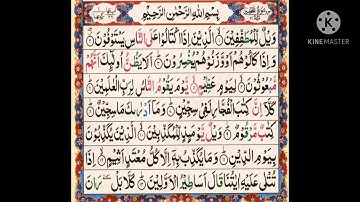 بِسْمِ اللّٰهِ الرَّحْمٰنِ الرَّحِيْمِ
وَيْلٌ لِّلْمُطَفِّفِيْنَ ۙ الَّذِيْنَ اِذَا اكْتَالُوْا عَلَى النَّاسِ يَسْتَوْفُوْنَ ۖ
وَاِذَا كَالُوْهُمْ اَوْ وَّزَنُوْهُمْ يُخْسِرُوْنَ ؕ اَلَا يَظُنُّ اُولٰٓئِكَ اَنَّهُمْ
مَّبْعُوْثُوْنَ ۙ لِيَوْمٍ عَظِيْمٍ ۙ يَّوْمَ يَقُوْمُ النَّاسُ لِرَبِّ الْعٰلَمِيْنَ ؕ
كَلَّاۤ اِنَّ كِتٰبَ الْفُجَّارِ لَفِيْ سِجِّيْنٍ ؕ وَمَاۤ اَدْرٰىكَ مَا سِجِّيْنٌ ؕ
كِتٰبٌ مَّرْقُوْمٌ ؕ وَيْلٌ يَّوْمَئِذٍ لِّلْمُكَذِّبِيْنَ ۙ الَّذِيْنَ يُكَذِّبُوْنَ
بِيَوْمِ الدِّيْنِ ؕ وَمَا يُكَذِّبُ بِهٖۤ اِلَّا كُلُّ مُعْتَدٍ اَثِيْمٍ ۙ اِذَا
تُتْلٰى عَلَيْهِ اٰيٰتُنَا قَالَ اَسَاطِيْرُ الْاَوَّلِيْنَ ؕ كَلَّا بَلْ ٚ رَانَ
KINEMASTER